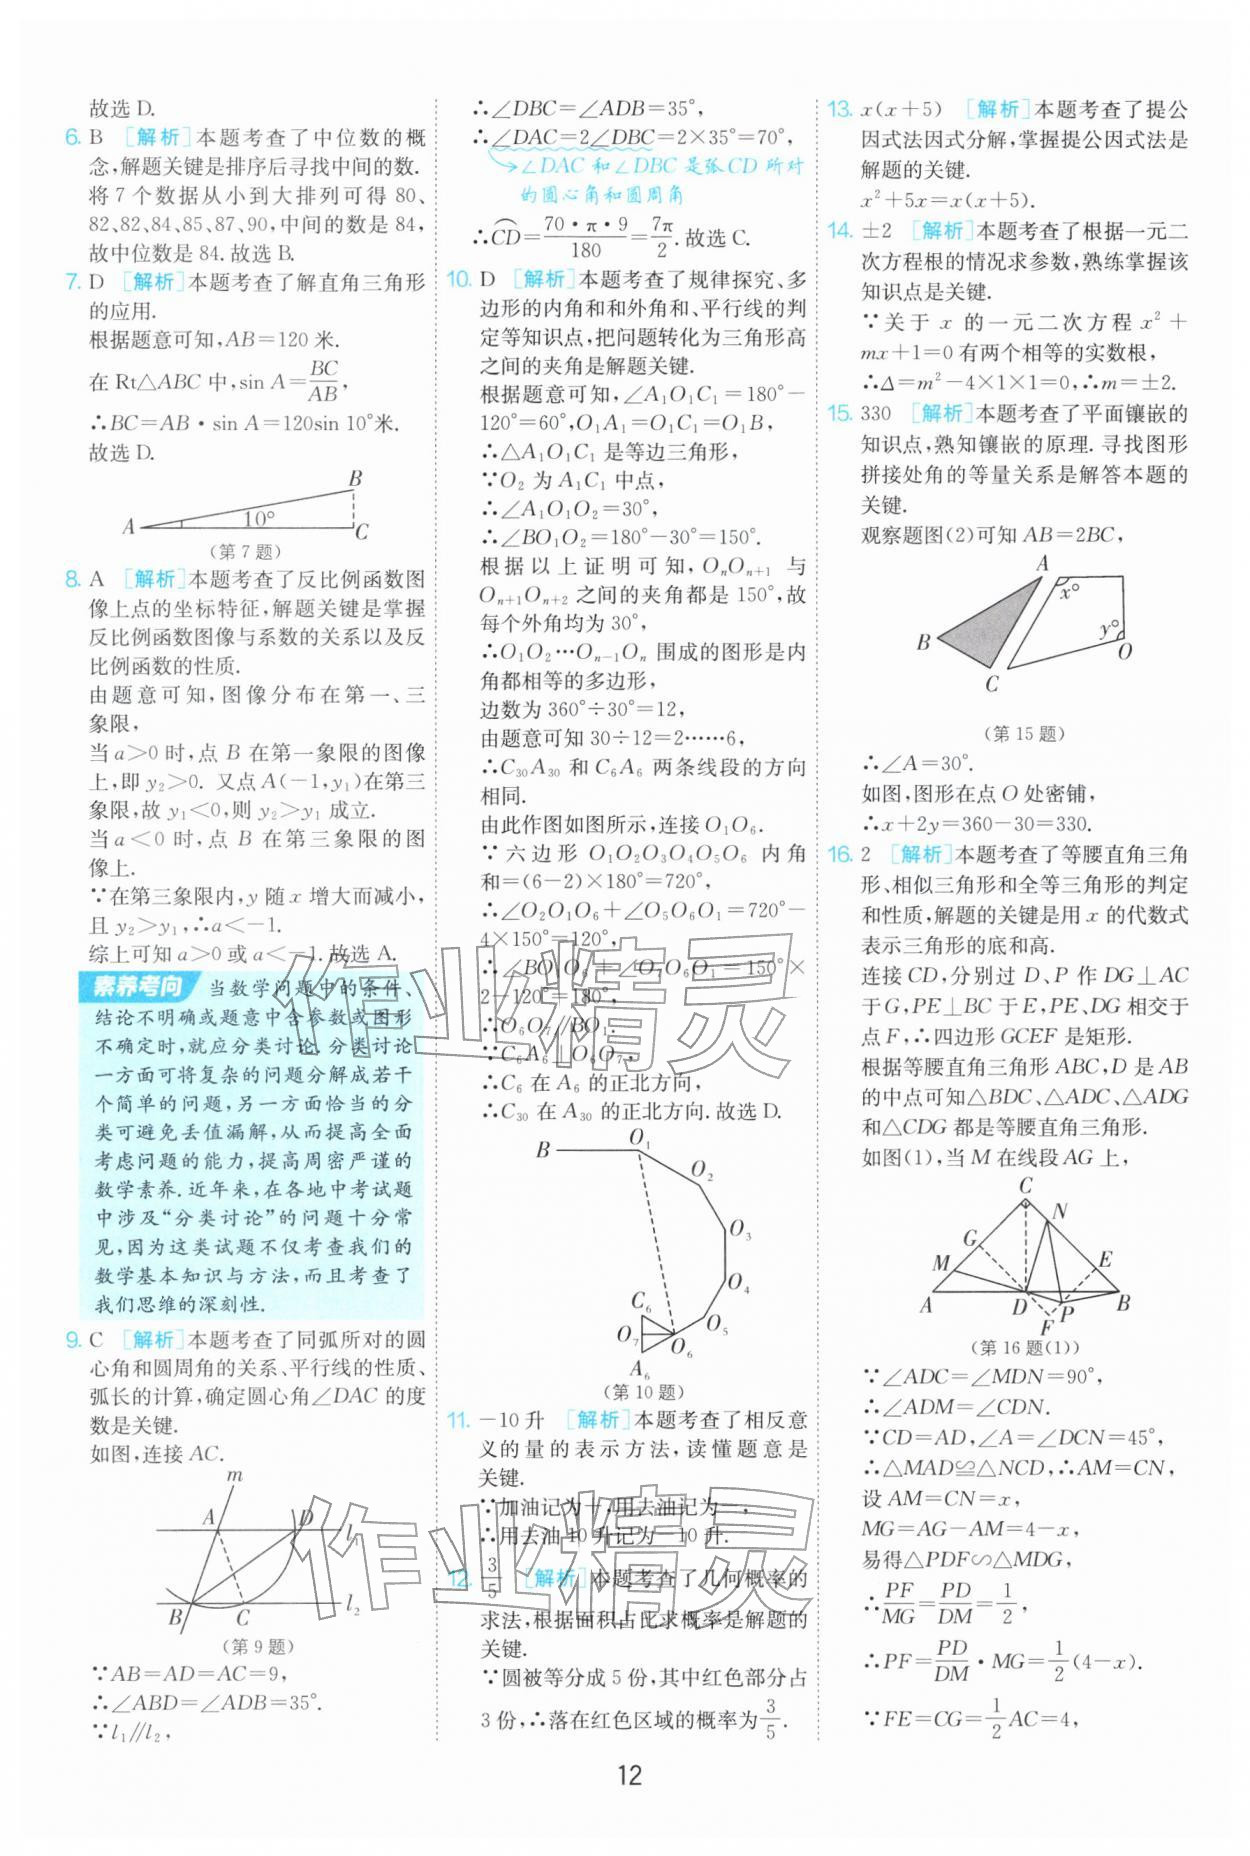 故选 D.
6. B [解析]本题考查了中位数的概
念,解题关键是排序后寻找中间的数.
将 7 个数据从小到大排列可得 80、
82、82、84、85、87、90,中间的数是 84,
故中位数是 84. 故选 B.
7. D [解析]本题考查了解直角三角形
的应用.
根据题意可知,AB=120 米.
在 Rt△ABC 中,sin A=BC/AB,
∴BC=AB·sin A=120sin 10°米.
故选 D.
B
A 10° C
(第 7 题)
8. A [解析]本题考查了反比例函数图
像上点的坐标特征,解题关键是掌握
反比例函数图像与系数的关系以及反
比例函数的性质.
由题意可知,图像分布在第一、三
象限,
当 a>0 时,点 B 在第一象限的图像
上,即 y₂>0. 又点 A(-1,y₁)在第三
象限,故 y₁<0,则 y₂>y₁ 成立.
当 a<0 时,点 B 在第三象限的图
像上.
∵在第三象限内,y 随 x 增大而减小,
且 y₂>y₁,∴a<-1.
综上可知 a>0 或 a<-1. 故选 A.
素养考向 当数学问题中的条件、
结论不明确或题意中含参数或图形
不确定时,就应分类讨论. 分类讨论
一方面可将复杂的问题分解成若干
个简单的问题,另一方面恰当的分
类可避免丢值漏解,从而提高全面
考虑问题的能力,提高周密严谨的
数学素养. 近年来,在各地中考试题
中涉及“分类讨论”的问题十分常
见,因为这类试题不仅考查我们的
数学基本知识与方法,而且考查了
我们思维的深刻性.
9. C [解析]本题考查了同弧所对的圆
心角和圆周角的关系、平行线的性质、
弧长的计算,确定圆心角∠DAC 的度
数是关键.
如图,连接 AC.
m
A D l₁
B C l₂
(第 9 题)
∵AB=AD=AC=9,
∴∠ABD=∠ADB=35°.
∵l₁∥l₂,
∴∠DBC=∠ADB=35°,
∴∠DAC=2∠DBC=2×35°=70°,
∠DAC 和∠DBC 是弧CD 所对
的圆心角和圆周角
∴⌒CD=70·π·9/180=7π/2. 故选 C.
10. D [解析]本题考查了规律探究、多
边形的内角和和外角和、平行线的判
定等知识点,把问题转化为三角形高
之间的夹角是解题关键.
根据题意可知,∠A₁O₁C₁=180°-
120°=60°,O₁A₁=O₁C₁=O₁B,
∴△A₁O₁C₁ 是等边三角形,
∵O₂ 为 A₁C₁ 中点,
∴∠A₁O₁O₂=30°,
∴∠BO₁O₂=180°-30°=150°.
根据以上证明可知,OₙOₙ₊₁ 与
Oₙ₊₁Oₙ₊₂ 之间的夹角都是 150°,故
每个外角均为 30°,
∴O₁O₂…Oₙ₋₁Oₙ 围成的图形是内
角都相等的多边形,
边数为 360°÷30°=12,
由题意可知 30÷12=2……6,
∴C₃₀A₃₀ 和 C₆A₆ 两条线段的方向
相同.
由此作图如图所示,连接 O₁O₆.
∵六边形 O₁O₂O₃O₄O₅O₆ 内角
和=(6-2)×180°=720°,
∴∠O₂O₁O₆+∠O₅O₆O₁=720°-
4×150°=120°,
∴∠BO₁O₆+∠O₇O₆O₁=150°×
2-120°=180°,
∴O₆O₇∥BO₁.
∵C₆A₆⊥O₆O₇,
∴C₆ 在 A₆ 的正北方向,
∴C₃₀ 在 A₃₀ 的正北方向. 故选 D.
B O₁
O₂
O₃
O₄
C₆
O₅
O₇ O₆
A₆
(第 10 题)
11. -10 升 [解析]本题考查了相反意
义的量的表示方法,读懂题意是
关键.
∵加油记为+,用去油记为-,
∴用去油 10 升记为-10 升.
12. 3/5 [解析]本题考查了几何概率的
求法,根据面积占比求概率是解题的
关键.
∵圆被等分成 5 份,其中红色部分占
3 份,∴落在红色区域的概率为3/5.
13. x(x+5) [解析]本题考查了提公
因式法因式分解,掌握提公因式法是
解题的关键.
x²+5x=x(x+5).
14. ±2 [解析]本题考查了根据一元二
次方程根的情况求参数,熟练掌握该
知识点是关键.
∵关于 x 的一元二次方程 x²+
mx+1=0 有两个相等的实数根,
∴Δ=m²-4×1×1=0,∴m=±2.
15. 330 [解析]本题考查了平面镶嵌的
知识点,熟知镶嵌的原理. 寻找图形
拼接处角的等量关系是解答本题的
关键.
观察题图(2)可知 AB=2BC,
A x°
B y°
C O
(第 15 题)
∴∠A=30°.
如图,图形在点 O 处密铺,
∴x+2y=360-30=330.
16. 2 [解析]本题考查了等腰直角三角
形、相似三角形和全等三角形的判定
和性质,解题的关键是用 x 的代数式
表示三角形的底和高.
连接 CD,分别过 D、P 作 DG⊥AC
于 G,PE⊥BC 于 E,PE、DG 相交于
点 F,∴四边形 GCEF 是矩形.
根据等腰直角三角形 ABC,D 是 AB
的中点可知△BDC、△ADC、△ADG
和△CDG 都是等腰直角三角形.
如图(1),当 M 在线段 AG 上,
C
N
G
M E
A D P B
F
(第 16 题(1))
∵∠ADC=∠MDN=90°,
∴∠ADM=∠CDN.
∵CD=AD,∠A=∠DCN=45°,
∴△MAD≌△NCD,∴AM=CN,
设 AM=CN=x,
MG=AG-AM=4-x,
易得△PDF∽△MDG,
∴PF/MG=PD/DM=1/2,
∴PF=PD/DM·MG=1/2(4-x).
∵FE=CG=1/2AC=4,
12
作业精灵
作业精灵